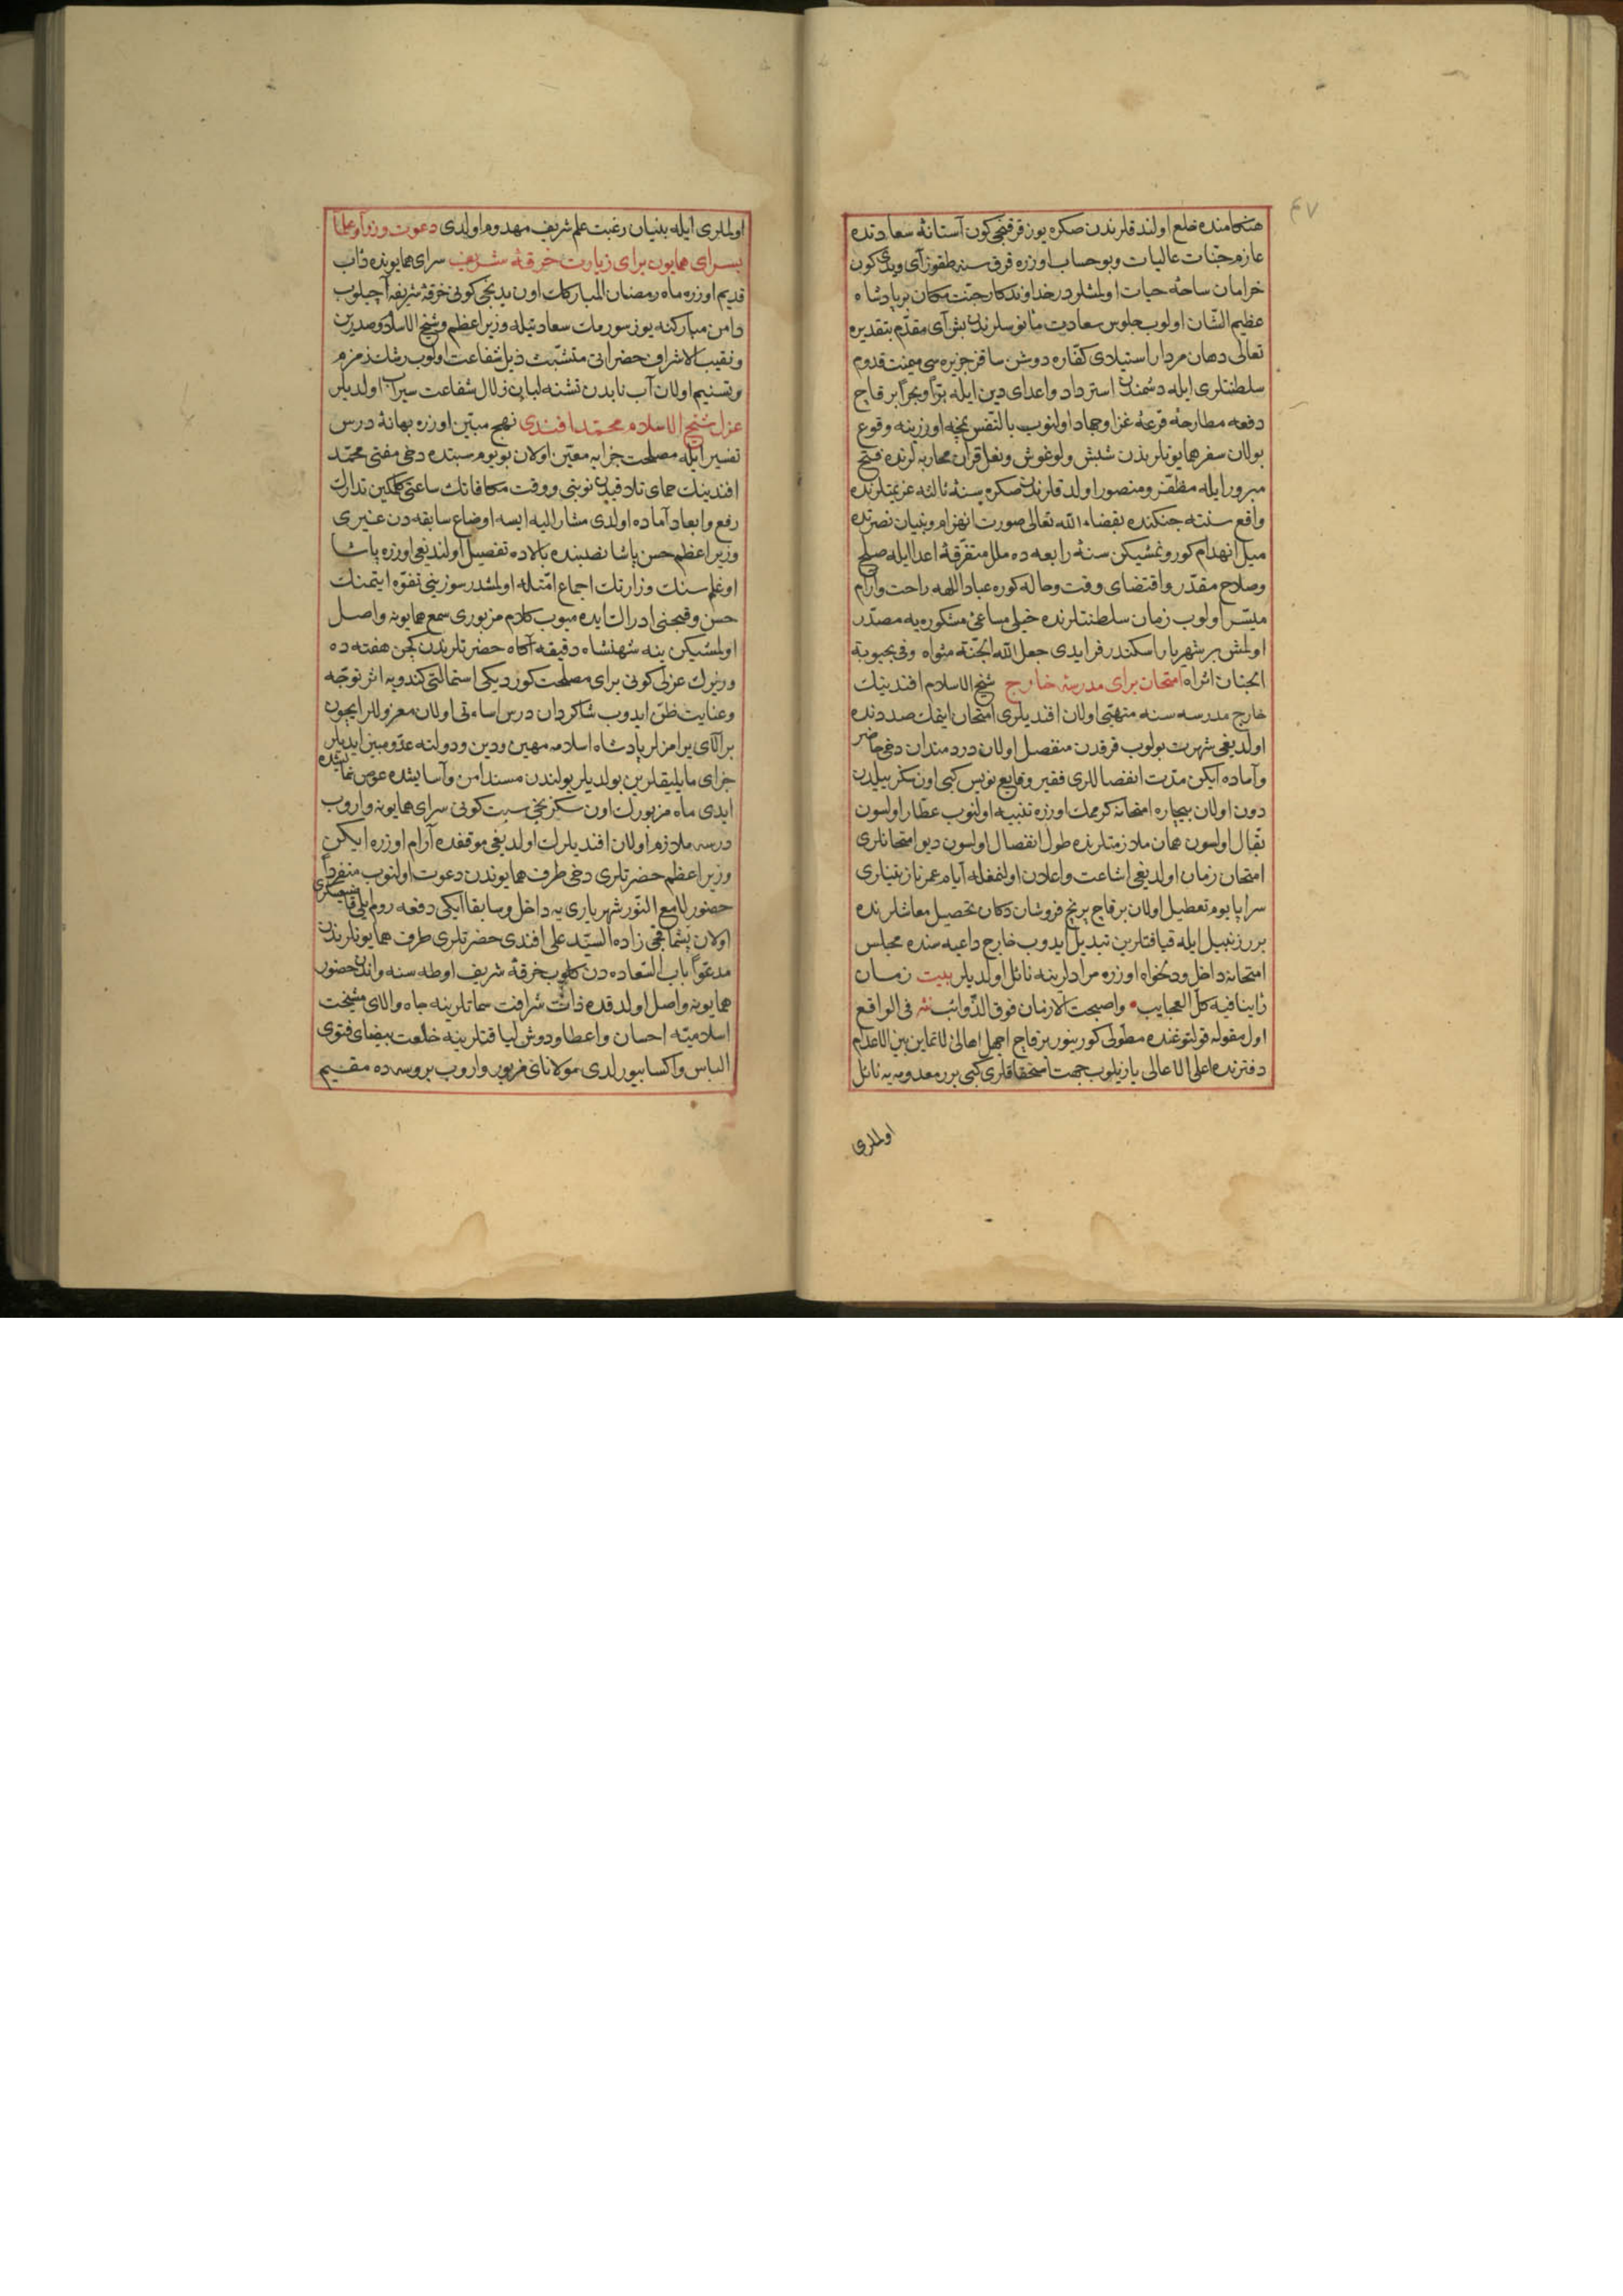 ۴۷
هنکامنده خلع اولندقلرندن صکره یوز قرقنجی کون آستانهٔ سعادتده
عازم جنّات عالیات و بو حساب اوزره قرق سنه طقوز آی ویدی کون
خرامان ساحهٔ حیات اولمشلردر خداوندکار جنّت مکان بر پادشاه
عظیم الشّان اولوب جلوس سعادت مأنوسلرندن بش آی مقدّم بتقدیره
تعالی دهان مردار استیلادی کفّاره دوشن ساقز جزیره سی میمنت قدوم
سلطنتلری ایله دشمندن استرداد و اعدای دین ایله برّاً و بحراً بر قاچ
دفعه مطارحهٔ قرعهٔ غزا و جهاد اولنوب بالنّفس نجه اوزرینه وقوع
بولان سفر همایونلرندن شبش و لوغوش و نغل قران محاربه لرنده فتح
مبرور ایله مظفّر و منصور اولدقلرندن صکره سنهٔ ثالثه عزیمتلرنده
واقع سنته جنکنده بقضاء الله تعالی صورت انهزام و بنیان نصرتده
میل انهدام کورونمشیکن سنهٔ رابعه ده ملل متفرّقهٔ اعدا ایله صلح
و صلاح مقدّر و اقتضای وقت و حاله کوره عباد اللهه راحت و آرام
میسّر اولوب زمان سلطنتلرنده خیلی مساعیٔ مشکوره یه مصدّر
اولمش بر شهریار اسکندرفر ایدی جعل الله الجنّة مثواه وفی بحبوبة
الجنان اثراه امتحان برای مدرسهٔ خارج شیخ الاسلام افندینک
خارج مدرسه سنه منهتی اولان افندیلری امتحان ایتمک صددنده
اولدیغی شهرت بولوب قرقدن منفصل اولان دردمندان دخی حاضر
و آماده ایکن مدّت انفصاللری فقیر وقایع نویس کبی اون سکز ییلدن
دون اولان بیچاره امتحانه کرممک اوزره تنبیه اولنوب عطار اولسون
بقال اولسون همان ملازمتلرنده طول انفصال اولسون دیو امتحانلری
امتحان زمان اولدیغی اشاعت و اعلان اولنمغله آیام عمر نازنینلری
سراپا یوم تعطیل اولان بر قاچ برنج فروشان دکان تحصیل معاشلرنده
برر زنبیل ایله قیافتلرین تبدیل ایدوب خارج داعیه سنده مجلس
امتحانه داخل و دلخواه اوزره مرادلرینه نائل اولدیلر بیت زمان
رٔاینا فیه کلّ العجایب • واصبحت الارمان فوق الذّوائب نثر فی الواقع
اول مقوله قولتوغنده مطوّلی کورینور بر قاچ اجهل اهالی لاتماین بین الاعدام
دفترنده اعلی الاعالی یازیلوب جهت استحقاقلری کبی برر معدومیه نائل
اولملری
اولملری ایله بنیان رغبت علم شریف مهدوم اولدی دعوت وزرا و علما
بسرای همایون برای زیارت خرقهٔ شریف سرای همایونده دٔاب
قدیم اوزره ماه رمضان المبارکک اون یدنجی کونی خرقهٔ شریفه آچیلوب
دامن مبارکنه یوز سورمک سعادتیله وزیر اعظم و شیخ الاسلام و صدرین
و نقیب الاشراف حضراتی متشبّث ذیل شفاعت اولوب رشک زمزم
و تسنیم اولان آب نابدن تشنه لبان زلال شفاعت سیراب اولدیلر
عزل شیخ الاسلام محمّد افندی نهج مبیّن اوزره بهانهٔ درس
تفسیر ایله مصلحت جزایه معیّن اولان بو یوم سبتده دخی مفتی محمّد
افندینک حمای تلادقیدن نوبتی و وقت مکافاتک ساعتی کلمکین تدارک
رفع و ابعاد آماده اولدی مشار الیه ایسه اوضاع سابقه دن غیری
وزیر اعظم حسن پاشا نصبنده بالاده تفصیل اولندیغی اوزره پاشا
اوغلی سنک وزارتک اجماع امّتله اولمشدر سوزینی تفوّه ایتمنک
حسن و قبحنی ادراک ایده میوب کلام مزبوری سمع همایونه واصل
اولمشیکن ینه شهنشاه دقیقه آکاه حضرتلرندن کچن هفته ده
وزیرک عزلی کونی برای مصلحت کوردیکی استمالتی کندویه اثر توجّه
و عنایت ظن ایدوب شاکردان درس اساءتی اولان معزوللر ایچون
بر آلای یرامزلر پادشاه اسلامه مهین و دین و دولته عدوّ مبین ایدیلر
جزای مایلیقلرین بولدیلر بولندن مسند امن و آسایشده عرض نمایشده
ایدی ماه مزبورک اون سکزنجی سبت کونی سرای همایونه واروب
درسه ملازم اولان افندیلرک اولدیغی موقفده آرام اوزره ایکن
وزیر اعظم حضرتلری دخی طرف همایوندن دعوت اولنوب منفرداً
حضور لامع النّور شهریاری یه داخل و سابقا ایکی دفعه روم ایلی قاضیعسکری
اولان پشماقجی زاده السیّد علی افندی حضرتلری طرف همایونلرندن
مدعوّاً باب السّعاده دن کلوب خرقهٔ شریف اوطه سنه و اندن حضور
همایونه واصل اولدقده ذات شرافت سماتلرینه جاه والای مشیخت
اسلامیّه احسان و اعطا و دوش لیاقتلرینه خلعت بیضای فتوی
الباس و اکسا بیورلدی مولانای مزبور واروب بروسه ده مقیم